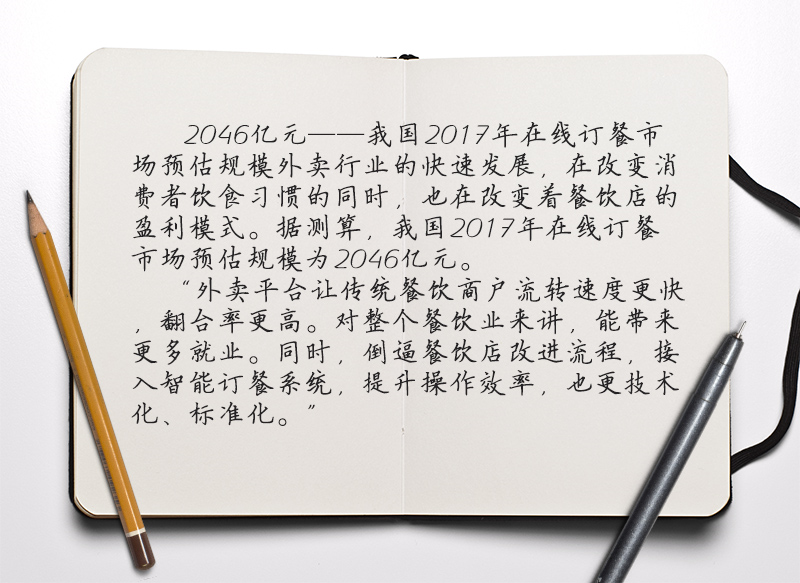 2046亿元——我国2017年在线订餐市
场预估规模外卖行业的快速发展，在改变消
费者饮食习惯的同时，也在改变着餐饮店的
盈利模式。据测算，我国2017年在线订餐
市场预估规模为2046亿元。
“外卖平台让传统餐饮商户流转速度更快
，翻台率更高。对整个餐饮业来讲，能带来
更多就业。同时，倒逼餐饮店改进流程，接
入智能订餐系统，提升操作效率，也更技术
化、标准化。”